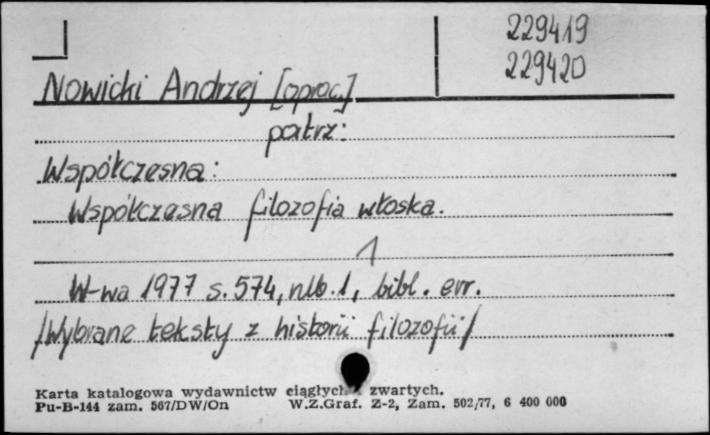 229419
229420
Nowicki Andrzej [oprac.]
patrz:
Współczesna:
Współczesna filozofia włoska.
1
W-wa 1977 s. 574, nlb. 1, bibl. err.
/Wybrane teksty z historii filozofii/
Karta katalogowa wydawnictw ciągłych zwartych.
Pu-B-144 zam. 567/DW/On W.Z.Graf. Z-2, Zam. 502/77, 6 400 000